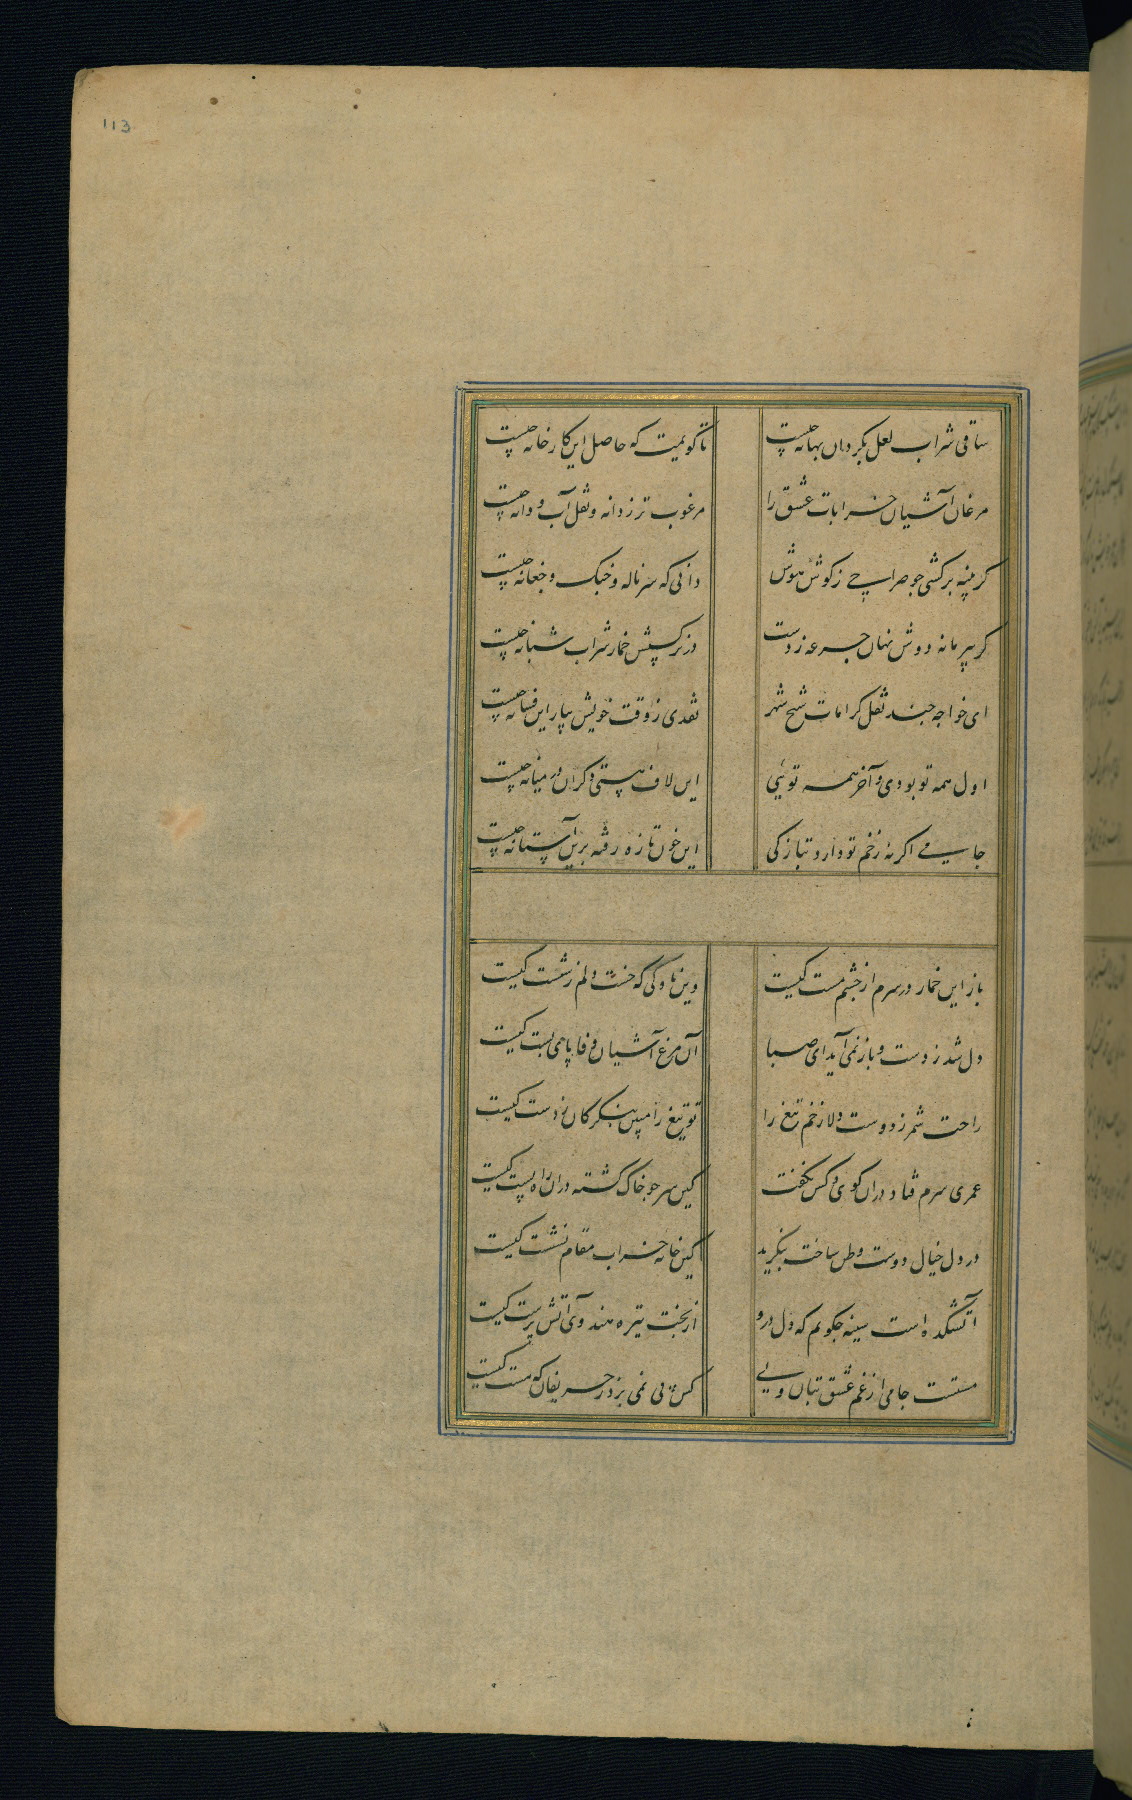 113
ساقی شراب لعل بگردان بهانه چیست تا گویمت که حاصل این کارخانه چیست
مرغان آشیان خرابات عشق را مرغوب تر ز دانه و نقل آب و دانه چیست
گر پنبه برکشی چو صراحی ز گوش هوش دانی که سر ناله و چنگ و چغانه چیست
گر پیر ما نه دوش نهان جرعه زدست در نرگسش خمار شراب شبانه چیست
ای خواجه چند نقل کرامات شیخ شهر نقدی ز وقت خویش بیار این فسانه چیست
اول همه تو بودی و آخر همه تویی این لاف هستی دگران در میانه چیست
جامی اگر نه زخم تو دارد بتازگی این خون تازه رفته برین آستانه چیست
باز این خمار در سرم از چشم مست کیست وین ناوکی که خست دلم ز شست کیست
دل شد ز دست و باز نمی آید ای صبا آن مرغ آشیان وفا پای بست کیست
راحت شمر ز دوست دلا زخم تیغ را تو تیغ را مبین بنگر کان ز دست کیست
عمری سرم فتاد در ان کوی و کس نگفت کین سر چو خاک گشته در ان راه پست کیست
در دل خیال دوست وطن ساخت بنگرید کین خانه خراب مقام نشست کیست
آتشکده است سینه چگویم که دل درو از بخت تیره هندوی آتش پرست کیست
مستست جامی از غم عشق بتان ولی کس پی نمی برد ز حریفان که مست کیست